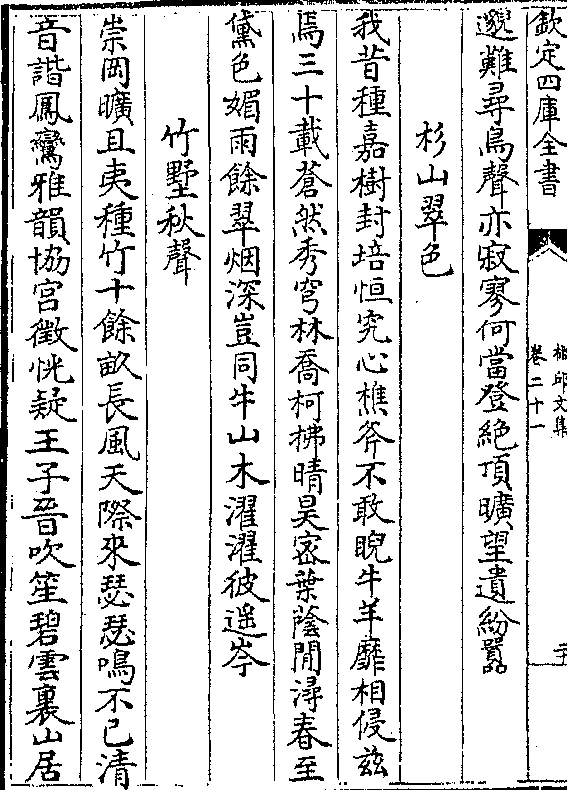 欽定四庫全書
卷二十一
邈難尋鳥聲亦寂寥何當登絶頂曠望遺紛囂
杉山翠色
我昔種嘉樹封培恒究心樵斧不敢睨牛羊靡相侵兹
焉三十載蒼然秀穹林喬柯拂晴昊宻葉蔭閒潯春至
黛色媚雨餘翠烟深豈同牛山木濯濯彼遥岑
竹墅秋聲
崇岡曠且夷種竹十餘畝長風天際来瑟瑟鳴不已清
音諧鳳鸞雅韻協宫徵恍疑王子晉吹笙碧雲裏山居